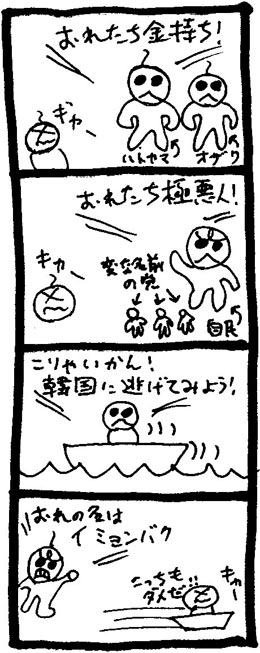 おれたち金持ち!
ギャー
ハトヤマ オザワ
おれたち極悪人!
キャー
変な名前
の党
自民
こりゃいかん!
韓国に逃げてみよう!
おれの名は
イ ミョンバク
こっちも
ダメだ!!
キャー